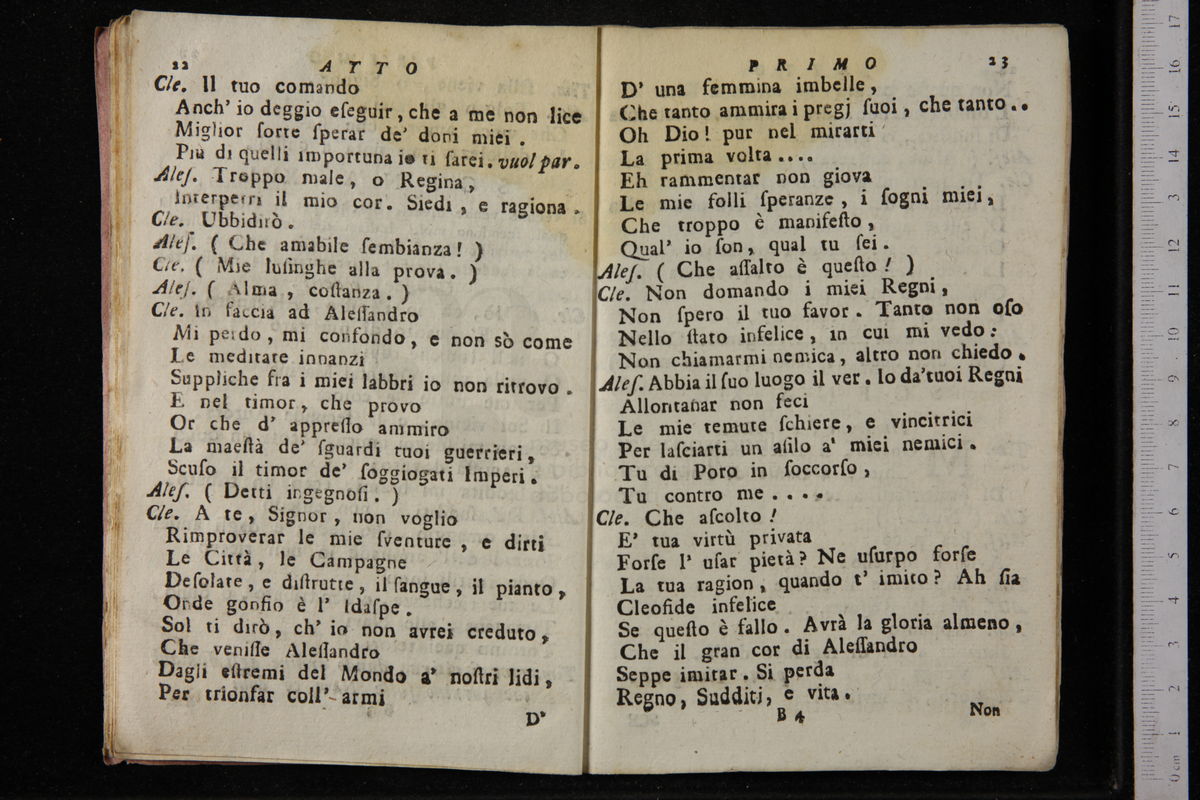 22 ATTO
Cle. Il tuo comando
Anch' io deggio eſeguir, che a me non lice
Miglior ſorte ſperar de' doni miei.
Più di quelli importuna io ti ſarei. vuol par.
Aleſ. Troppo male, o Regina,
Interpetri il mio cor. Siedi, e ragiona.
Cle. Ubbidirò.
Aleſ. ( Che amabile ſembianza! )
Cle. ( Mie luſinghe alla prova. )
Aleſ. ( Alma, coſtanza. )
Cle. In faccia ad Aleſſandro
Mi perdo, mi confondo, e non sò come
Le meditate innanzi
Suppliche fra i miei labbri io non ritrovo.
E nel timor, che provo
Or che d' appreſſo ammiro
La maeſtà de' ſguardi tuoi guerrieri,
Scuſo il timor de' ſoggiogati Imperi.
Aleſ. ( Detti ingegnoſi. )
Cle. A te, Signor, non voglio
Rimproverar le mie ſventure, e dirti
Le Città, le Campagne
Deſolate, e diſtrutte, il ſangue, il pianto,
Onde gonfio è l' Idaſpe.
Sol ti dirò, ch' io non avrei creduto,
Che veniſſe Aleſſandro
Dagli eſtremi del Mondo a' noſtri lidi,
Per trionfar coll' armi
D'
PRIMO 23
D' una femmina imbelle,
Che tanto ammira i pregj ſuoi, che tanto..
Oh Dio! pur nel mirarti
La prima volta....
Eh rammentar non giova
Le mie folli ſperanze, i ſogni miei,
Che troppo è manifeſto,
Qual' io ſon, qual tu ſei.
Aleſ. ( Che aſſalto è queſto! )
Cle. Non domando i miei Regni,
Non ſpero il tuo favor. Tanto non oſo
Nello ſtato infelice, in cui mi vedo:
Non chiamarmi nemica, altro non chiedo.
Aleſ. Abbia il ſuo luogo il ver. Io da' tuoi Regni
Allontanar non feci
Le mie temute ſchiere, e vincitrici
Per laſciarti un aſilo a' miei nemici.
Tu di Poro in ſoccorſo,
Tu contro me....
Cle. Che aſcolto!
E' tua virtù privata
Forſe l' uſar pietà? Ne uſurpo forſe
La tua ragion, quando t' imito? Ah ſia
Cleofide infelice
Se queſto è fallo. Avrà la gloria almeno,
Che il gran cor di Aleſſandro
Seppe imitar. Si perda
Regno, Sudditi, e vita.
B 4 Non
0 cm 1 2 3 4 5 6 7 8 9 10 11 12 13 14 15 16 17